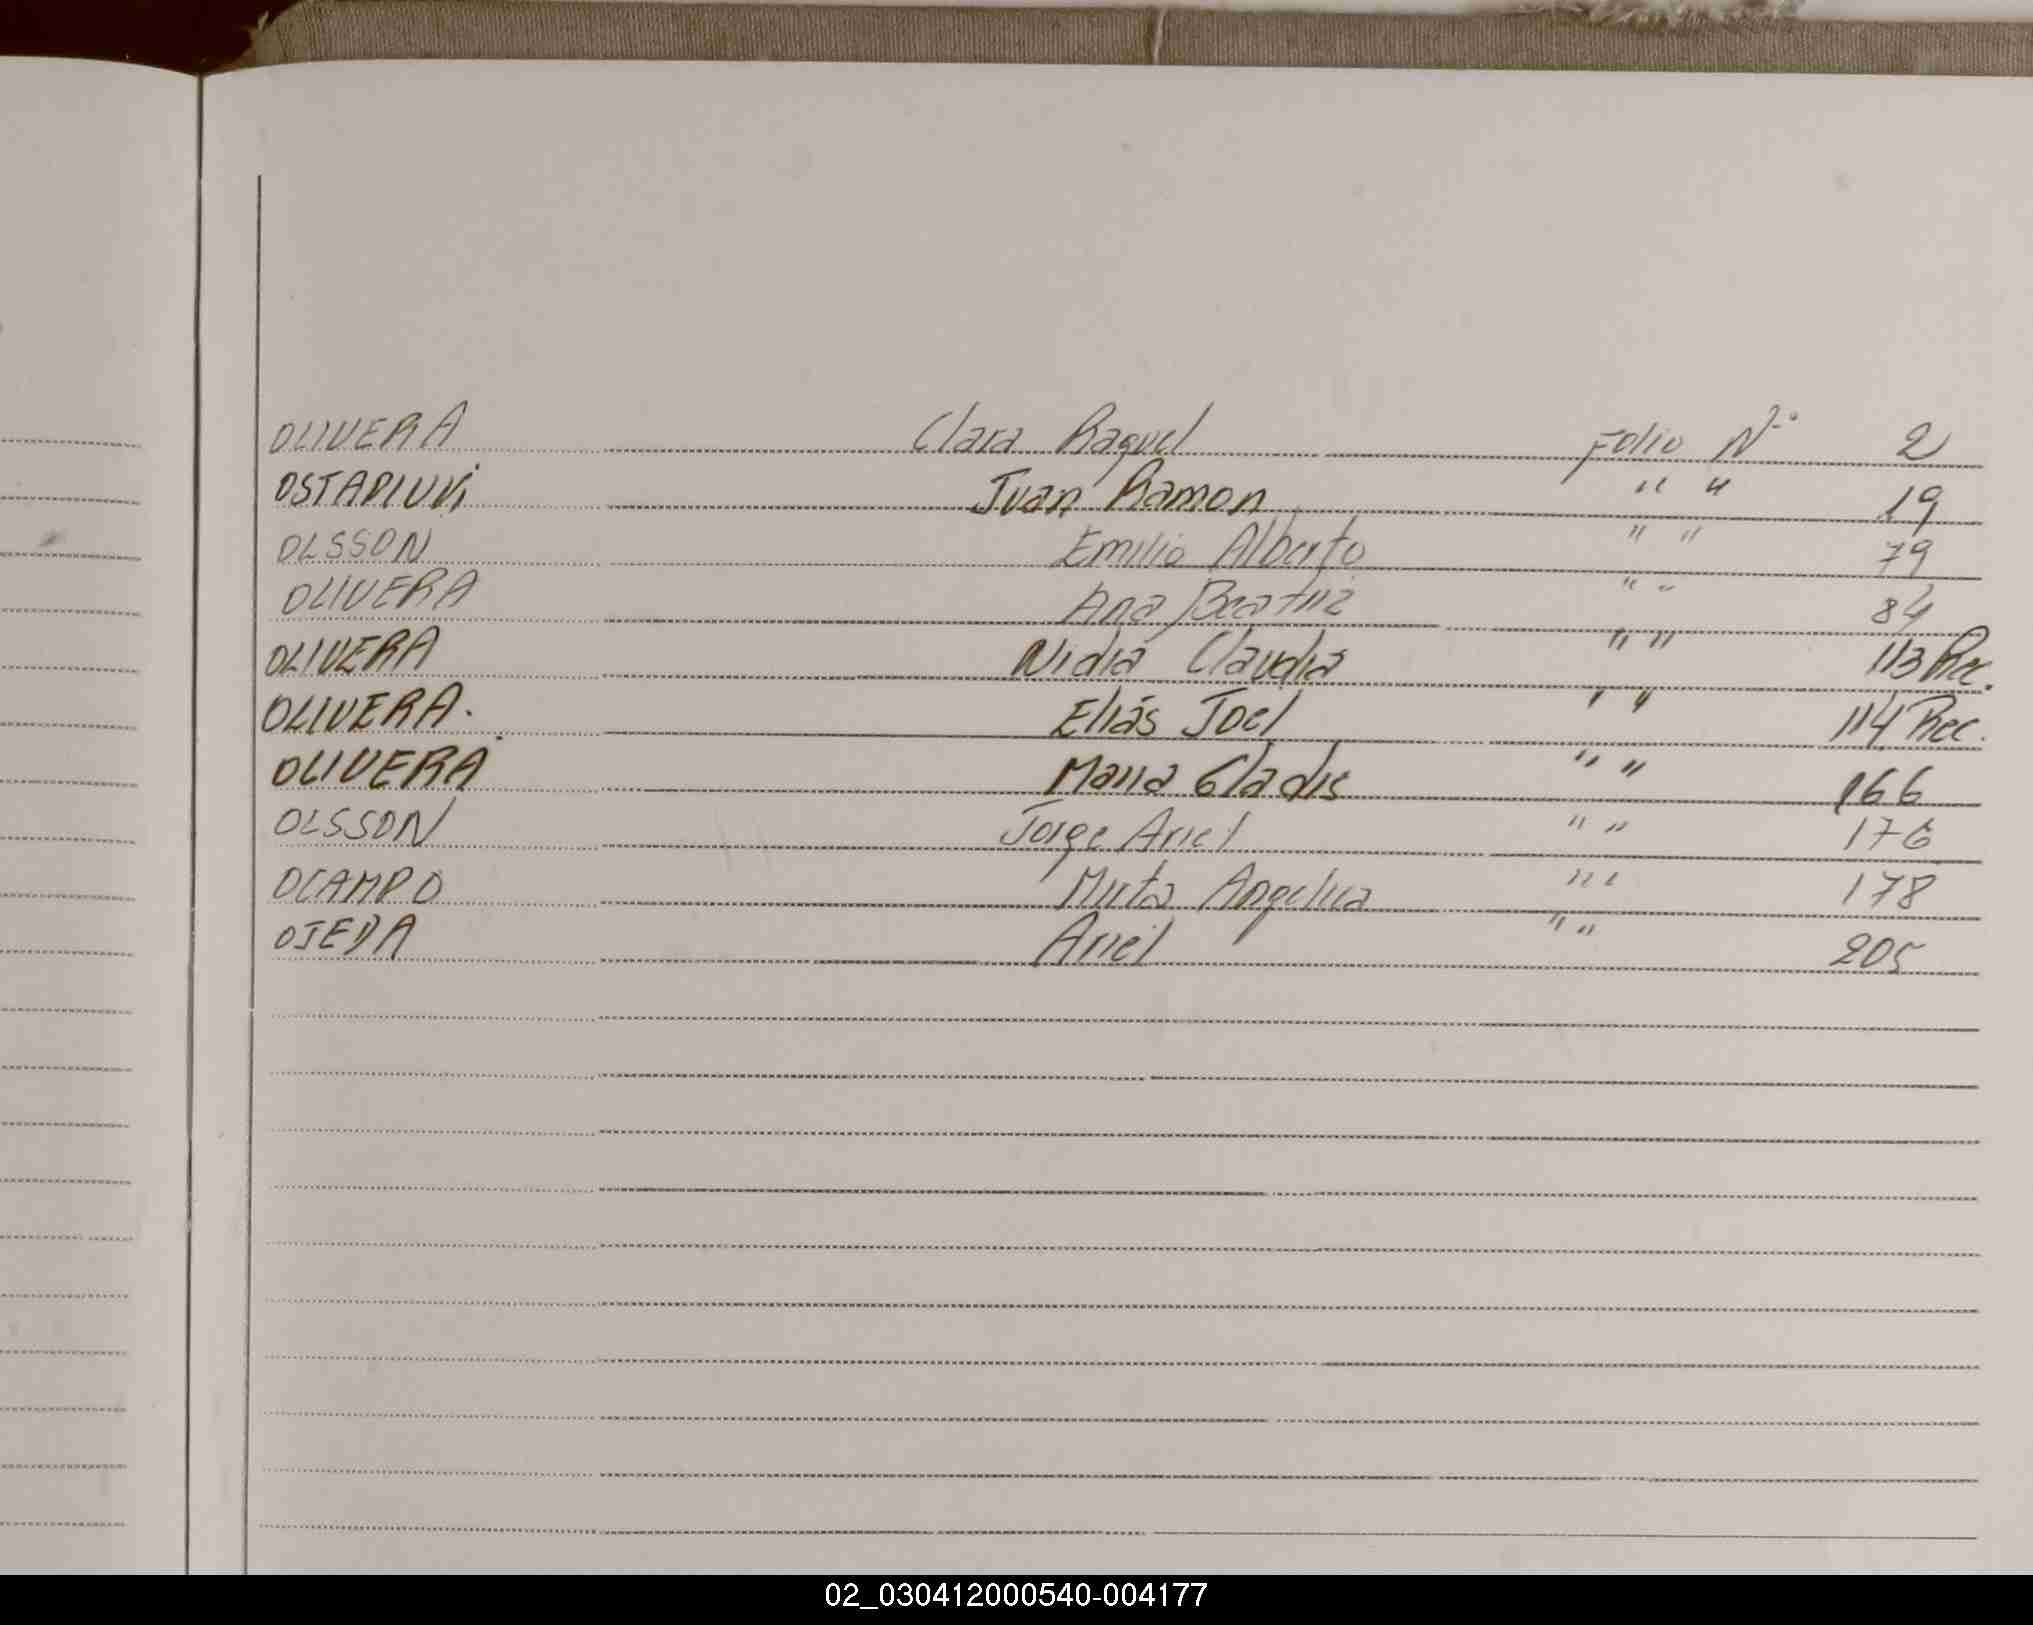 OLIVERA Clara Raquel Folio Nº 2
Juan Ramon " " 19
OLSSON Emilio Alberto " " 79
OLIVERA Ana Beatriz " " 84
OLIVERA Nidia Claudia " " 113 Rec.
OLIVERA. Elías Joel " " 114 Rec.
OLIVERA Maria Gladis " " 166
OLSSON Jorge Ariel " " 176
OCAMPO Mirta Angelica " " 178
OJEDA Ariel " " 205
02_030412000540-004177